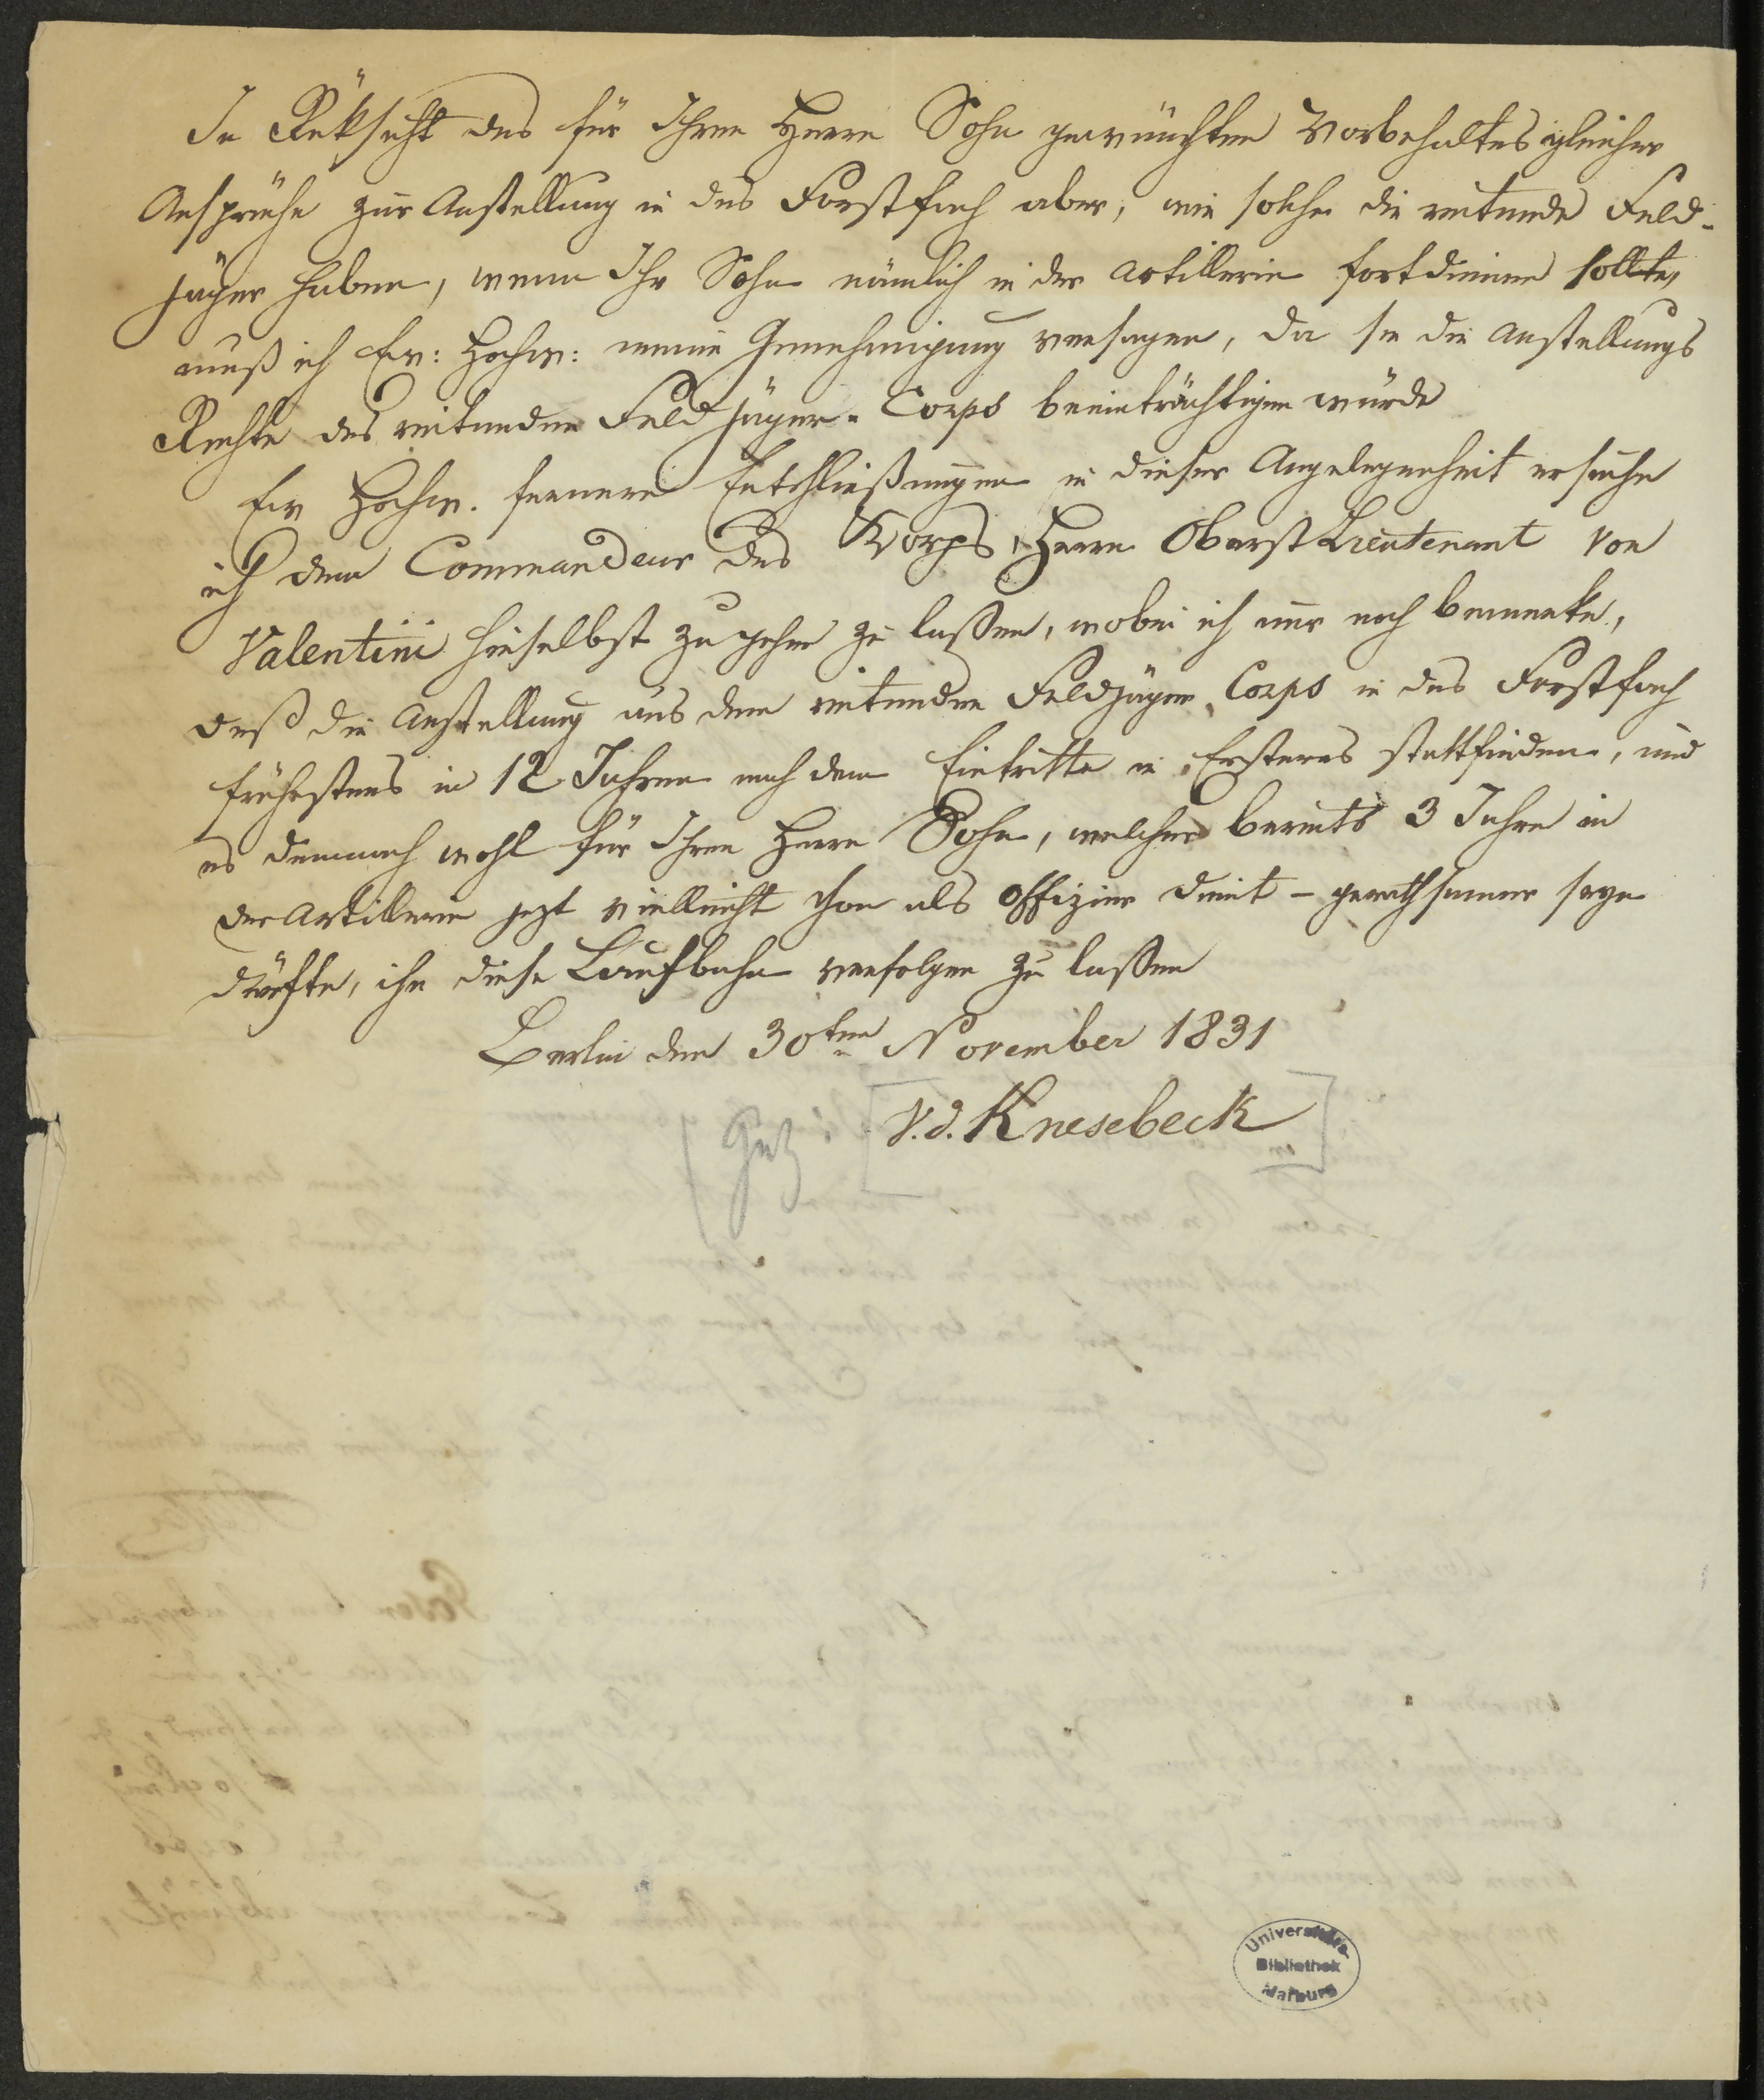 In Rüksicht des für Ihren Herrn Sohn gewünschten Vorbehaltes gleicher
Ansprüche zur Anstellung in das Forstfach aber, wie solche die reitende Feld-
jäger haben, wenn Ihr Sohn nämlich in der Artillerie fortdienen sollte,
muß ich Ew: Hochw: meine Genehmigung versagen, da sie die Anstellungs
Rechte des reitenden Feldjäger-Corps beeinträchtigen würde
Ew Hochw. fernere Entschließungen in dieser Angelegenheit ersuche
ich dem Commandeur des Korps, Herrn Oberst Lieutenant von
Valentini hieselbst zugehen zu laßen, wobei ich nur noch bemerke,
daß die Anstellung aus dem reitenden Feldjäger Corps in das Forstfach
frühestens in 12 Jahren nach dem Eintritte in Ersteres stattfinden, und
es demnach wohl für Ihren Herrn Sohn, welcher bereits 3 Jahre in
der Artillerie jezt vielleicht schon als Offizier dient – gerathsamer seyn
dürfte, ihn diese Laufbahn verfolgen zu laßen
Berlin den 30ten November 1831
(Gez: [v. d. Knesebeck]
Universitäts
Bibliothek
Marburg